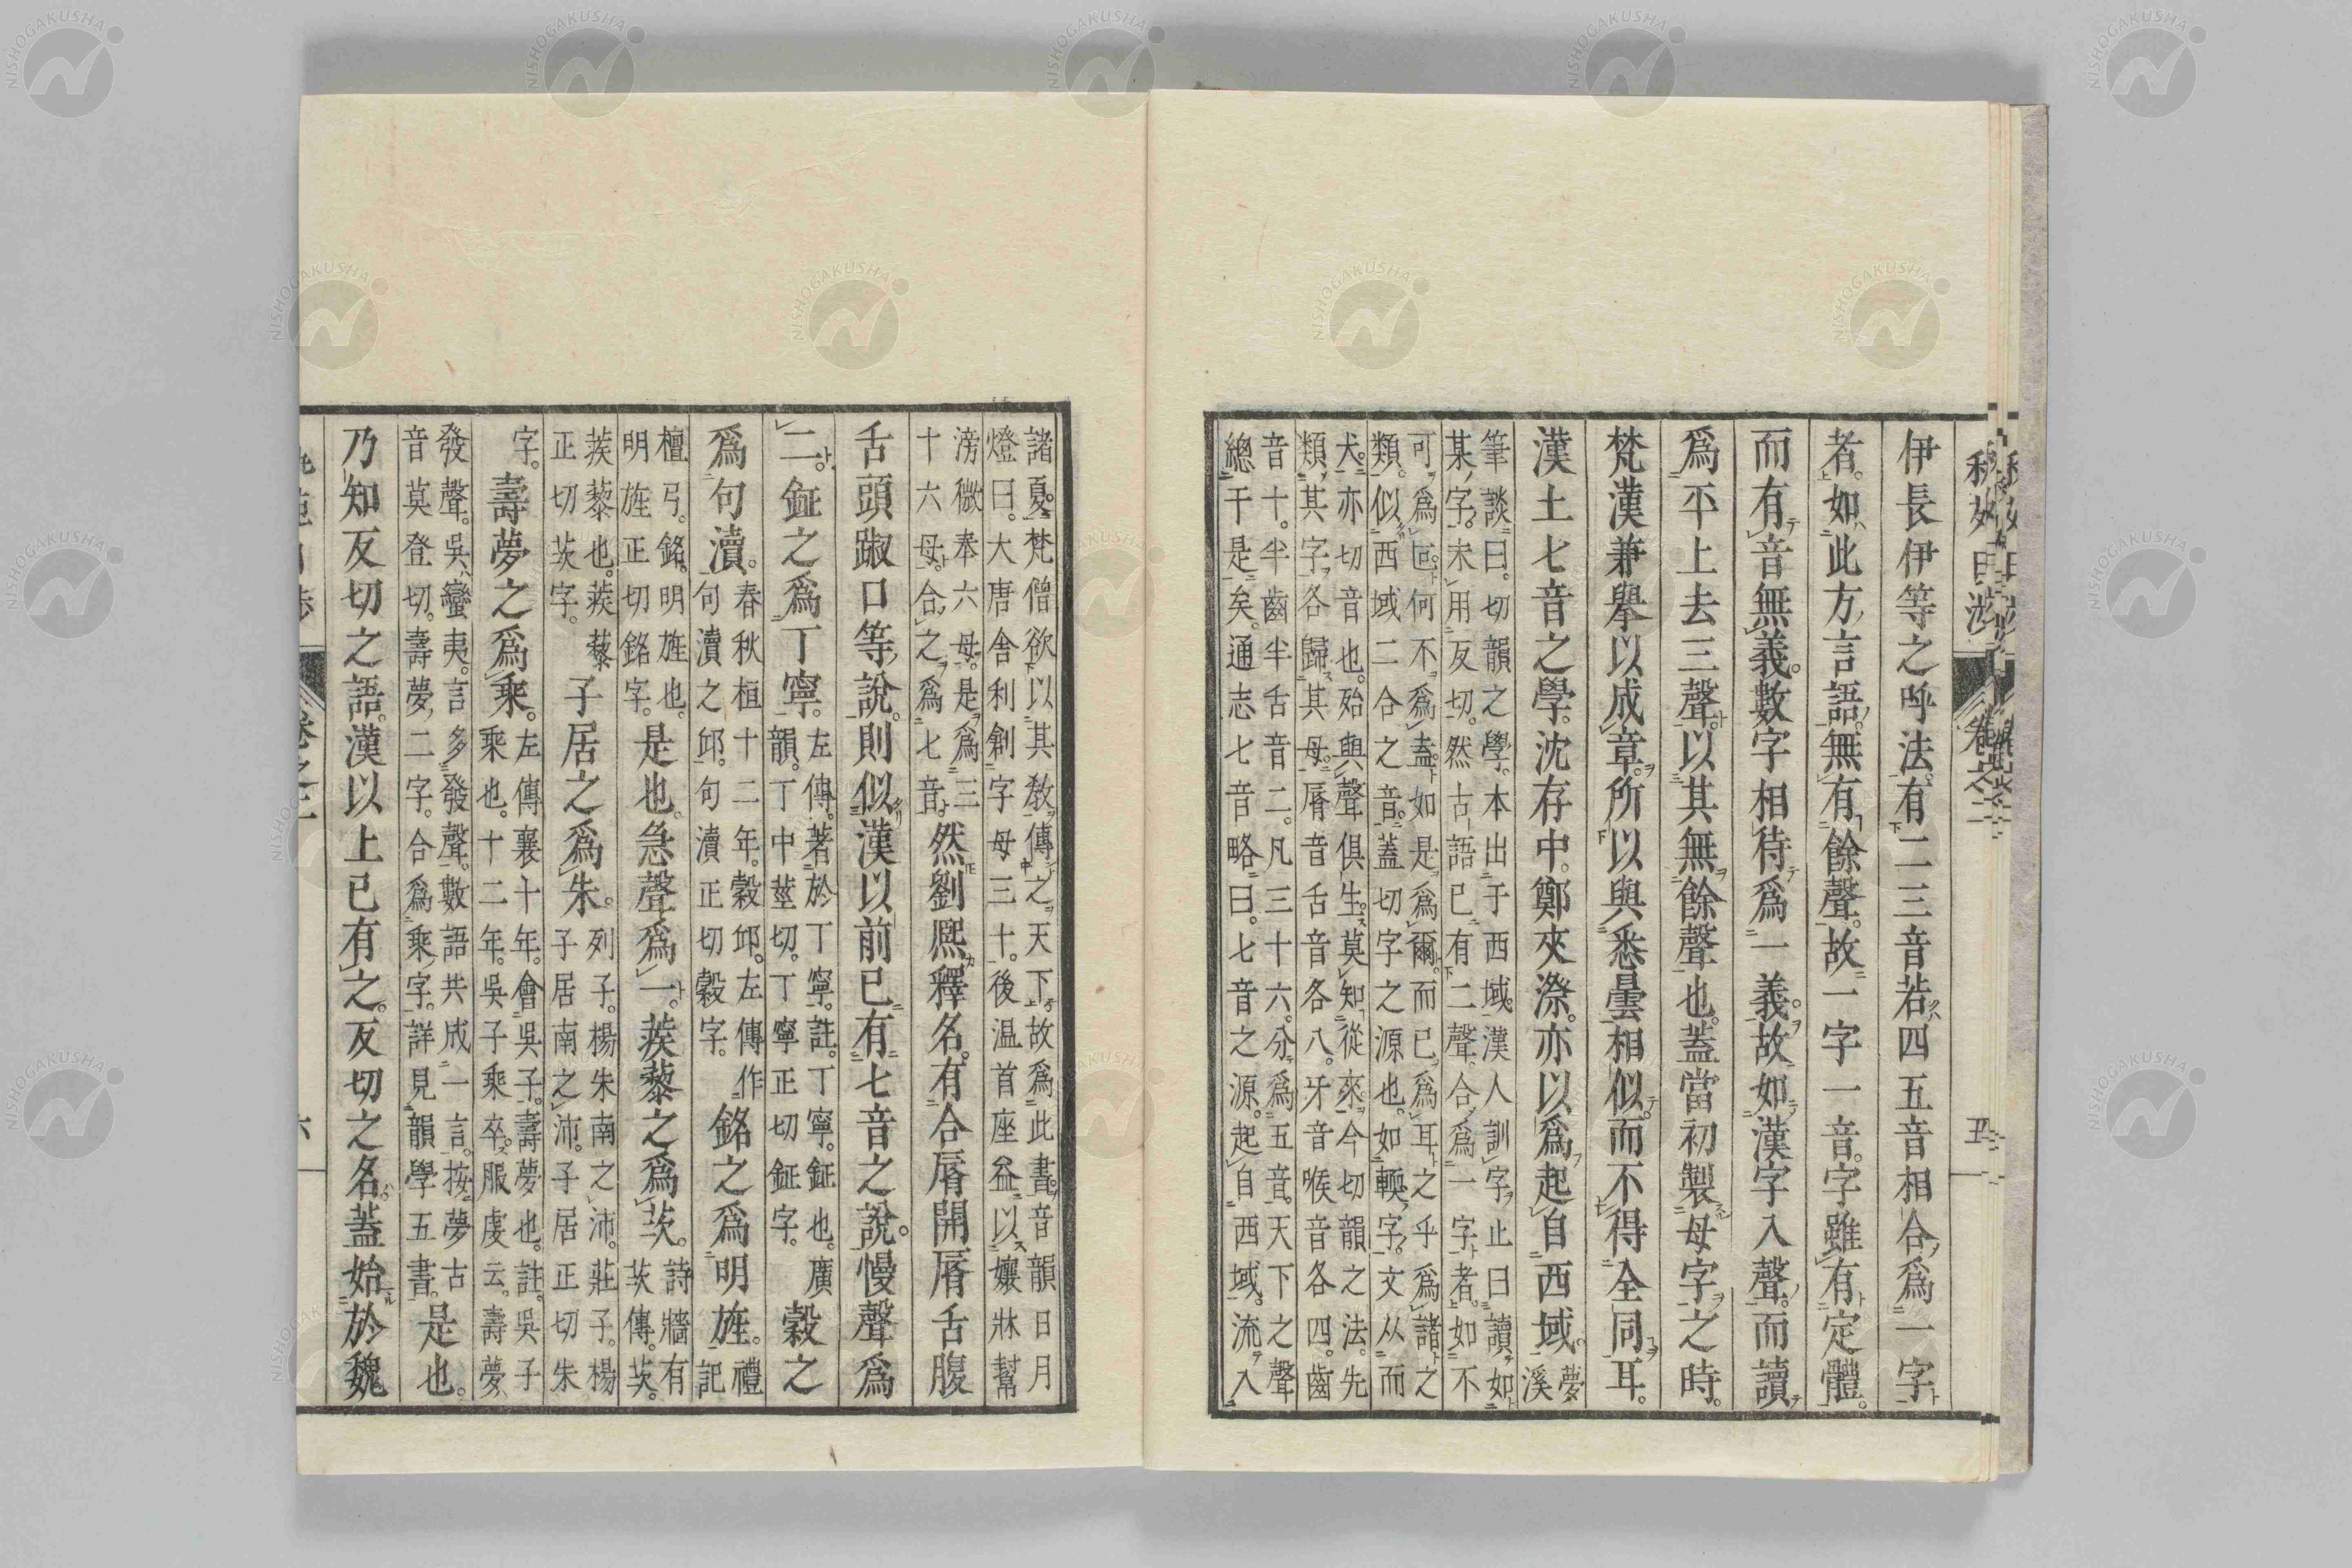 伊長伊等之呼法。有二三音若四五音相合爲一字
者。如此方言語。無有餘聲。故一字一音。字雖有定體。
而有音無義。數字相待爲一義。故如漢字入聲。而讀
爲平上去三聲。以其無餘聲也。蓋當初製母字之時。
梵漢兼擧以成章。所以與悉曇相似。而不得全同耳。
漢土七音之學。沈存中。鄭夾漈。亦以爲起自西域。夢溪
筆談曰。切韻之學。本出于西域。漢人訓字。止曰讀如
某字。未用反切。然古語已有二聲合爲一字者。如不
可爲叵。何不爲盍。如是爲爾。而已爲耳。之乎爲諸之
類。似西域二合之音。蓋切字之源也。如輭字。文从而
犬。亦切音也。殆與聲俱生。莫知從來。今切韻之法。先
類其字。各歸其母。脣音舌音各八。牙音喉音各四。齒
音十。半齒半舌音二。凡三十六。分爲五音。天下之聲
總于是矣。通志七音略曰。七音之源。起自西域。流入
諸夏。梵僧欲以其敎傳之天下。故爲此書。音韻日月
燈曰。大唐舍利創字母三十。後温首座益以孃牀幫
滂微奉六母。是爲三
十六母。合之爲七音。然劉熙釋名。有合脣開脣舌腹
舌頭踧口等說。則似漢以前已有七音之說。慢聲爲
二。鉦之爲丁寧。左傳。著於丁寧。註。丁寧。鉦也。廣
韻。丁中莖切。丁寧正切鉦字。穀之
爲句瀆。春秋桓十二年。穀邱。左傳作
句瀆之邱。句瀆正切穀字。銘之爲明旌。禮記
檀弓。銘。明旌也。
明旌正切銘字。是也。急聲爲一。蒺藜之爲茨。詩牆有
茨傳。茨。
蒺藜也。蒺藜
正切茨字。子居之爲朱。列子。楊朱南之沛。莊子。楊
子居南之沛。子居正切朱
字。壽夢之爲乘。左傳襄十年。會吳子。壽夢也。註。吳子
乘也。十二年。吳子乘卒。服虔云。壽夢
發聲。吳蠻夷。言多發聲。數語共成一言。按夢古
音莫登切。壽夢二字。合爲乘字。詳見韻學五書。是也。
乃知反切之語。漢以上已有之。反切之名。蓋始於魏